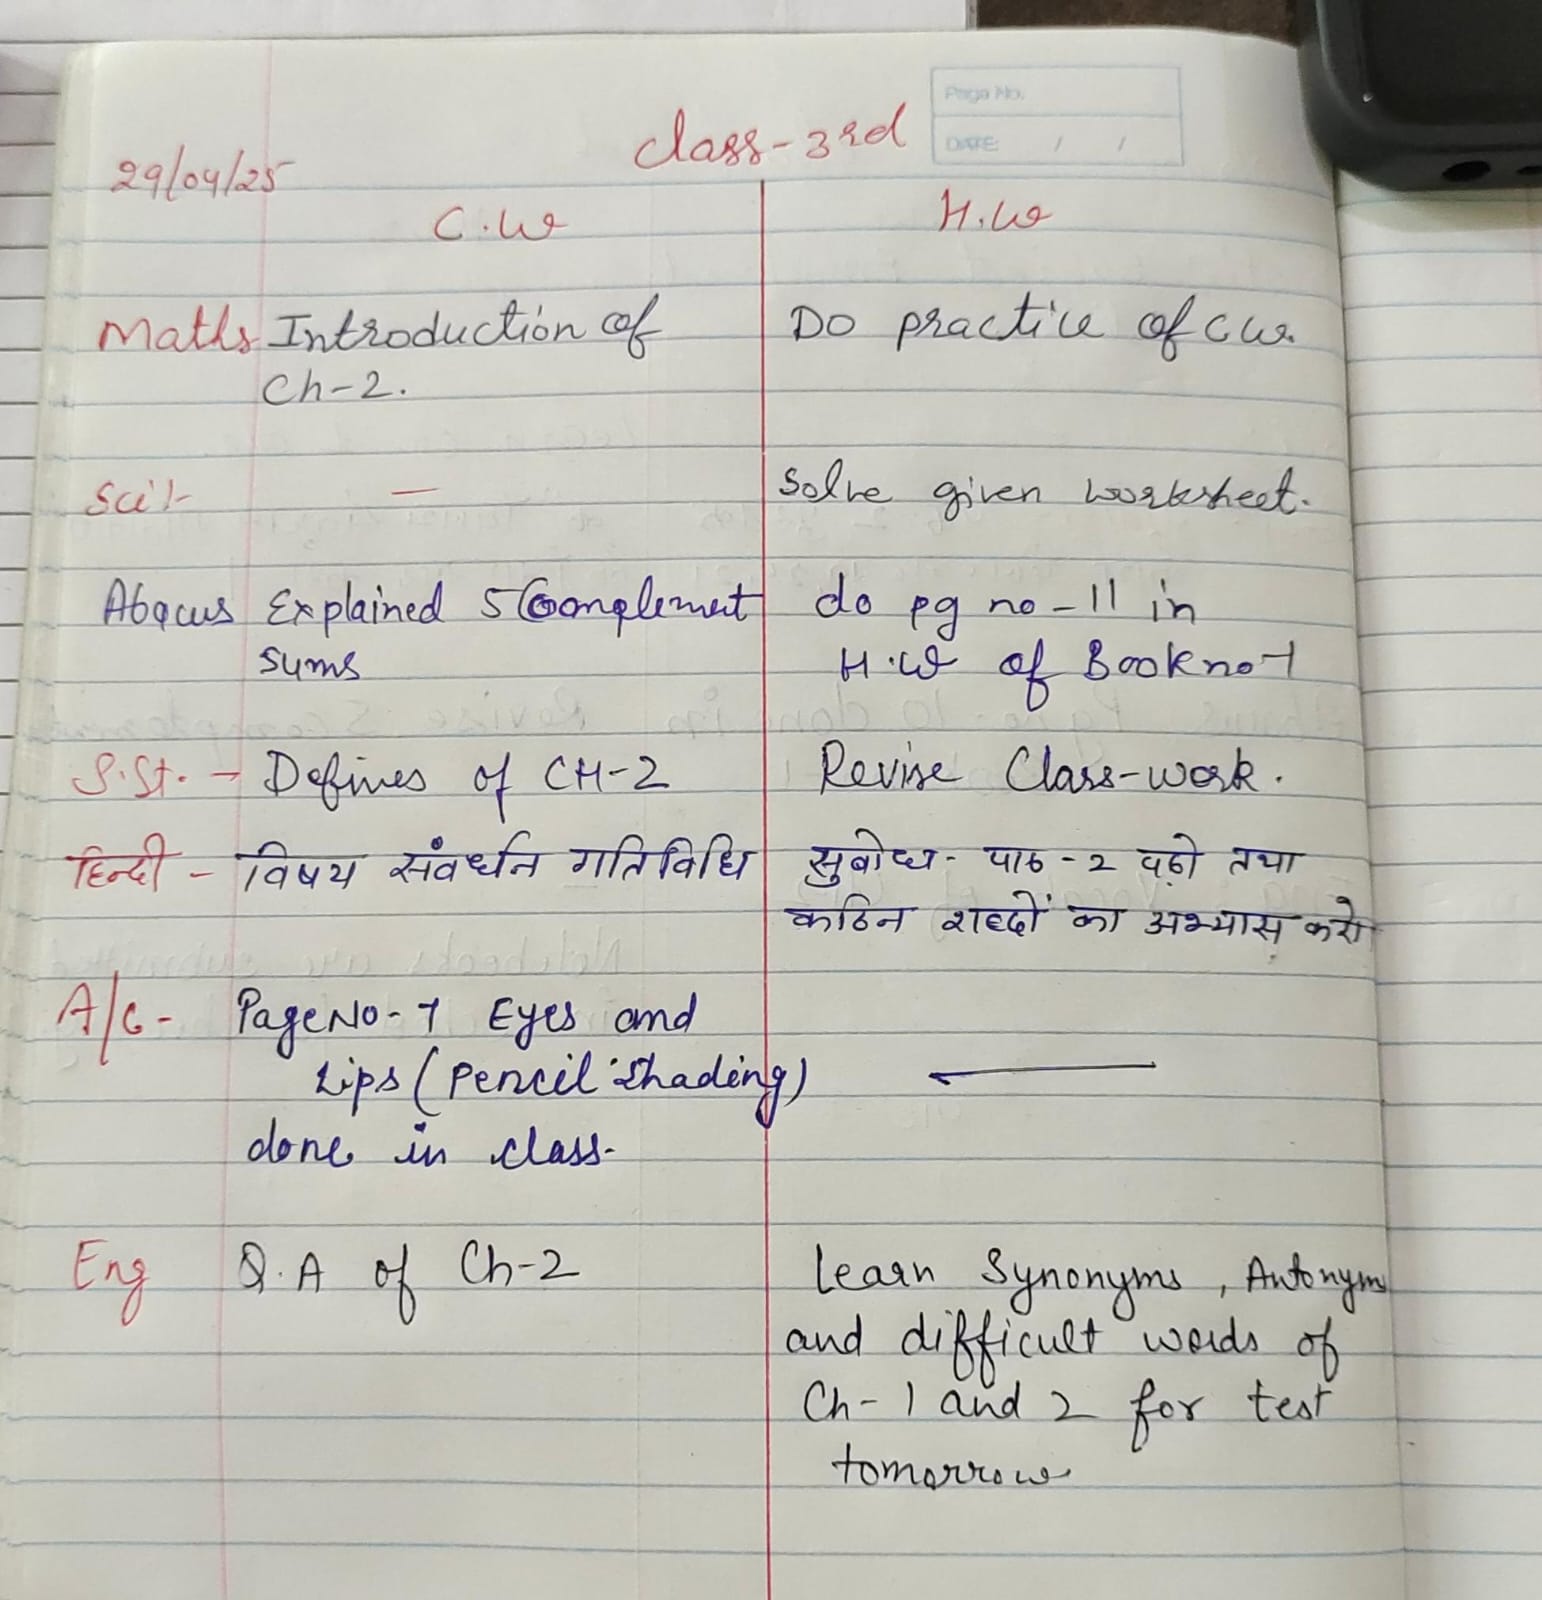 Page No.
class-3rd
DATE: / /
29/04/25
C.W H.W
Maths Introduction of Do practice of C.W.
Ch-2.
Sci:- — Solve given worksheet.
Abacus Explained 5 Complement do pg no - 11 in
sums H.W of Book no-1
S.St. - Defines of CH-2 Revise Class-work.
हिन्दी - विषय संवर्धन गतिविधि सुबोध - पाठ - 2 पढ़ो तथा
कठिन शब्दों का अभ्यास करो
A/C - Page No- 7 Eyes and
Lips (Pencil Shading) —
done in class.
Eng Q.A of Ch-2 Learn Synonyms, Antonyms
and difficult words of
Ch- 1 and 2 for test
tomorrow